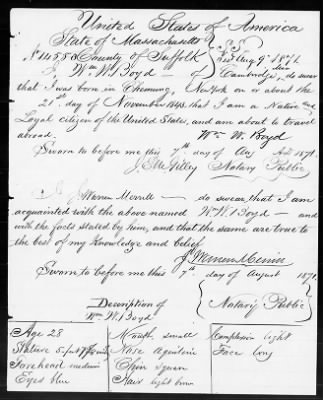 United States of America
State of Massachusetts
No 14580 County of Suffolk
Aug 9 1871
I Wm W. Boyd — of
Cambridge, do swear
that I was born in Chemung, New York on or about the
21st day of November 1842 that I am a Native and
Loyal citizen of the United States, and am about to travel
abroad.
Wm W. Boyd
Sworn to before me this 7th day of Aug A.D. 1871.
Notary Public
I, J Warren Merrill — do swear, that I am
acquainted with the above named Wm W. Boyd — and
with the facts stated by him, and that the same are true to
the best of my Knowledge and belief
J Warren Merrill
Sworn to before me this 7th day of August 1871.
Notary Public
Description of
Wm W. Boyd
Age 28 Mouth, small Complexion light
Stature 5 feet Nose aquiline Face long
Forehead medium Chin Square
Eyes blue Hair light brown